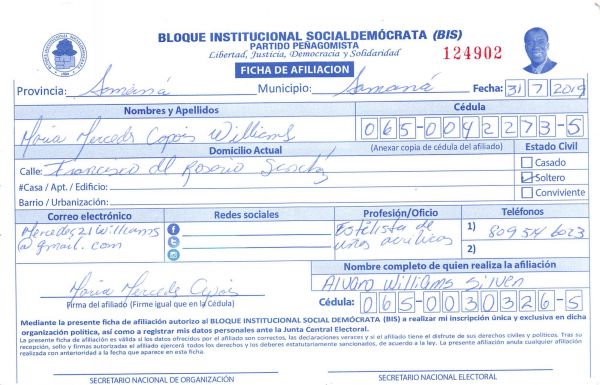 BLOQUE INSTITUCIONAL SOCIALDEMÓCRATA (BIS)
PARTIDO PEÑAGOMISTA
Libertad, Justicia, Democracia y Solidaridad
124902
FICHA DE AFILIACION
Provincia: Samaná Municipio: Samaná Fecha: 31 7 2019
Nombres y Apellidos Cédula
Maria Mercede Capois Williams 065-0042273-5
Domicilio Actual (Anexar copia de cédula del afiliado) Estado Civil
Calle: Francisco del Rosario Sanchéz Casado
#Casa / Apt. / Edificio: Soltero
Barrio / Urbanización: Conviviente
Correo electrónico Redes sociales Profesión/Oficio Teléfonos
Mercedes21williams Estelista de 1) 809 514 6023
@gmail.com uñas acrilicas 2)
Nombre completo de quien realiza la afiliación
Maria Mercede Capois Alvaro Williams Silven
Firma del afiliado (Firme igual que en la Cédula) Cédula: 065-0030326-5
Mediante la presente ficha de afiliación autorizo al BLOQUE INSTITUCIONAL SOCIAL DEMÓCRATA (BIS) a realizar mi inscripción única y exclusiva en dicha
organización política, así como a registrar mis datos personales ante la Junta Central Electoral.
La presente ficha de afiliación es válida si los datos ofrecidos por el afiliado son correctos, las declaraciones veraces y si el afiliado tiene el disfrute de sus derechos civiles y políticos. Tras su
recepción, sello y firmas autorizadas el afiliado ejercerá todos los derechos y los deberes estatutariamente sancionados, de acuerdo a la ley. La presente afiliación anula cualquier afiliación
realizada con anterioridad a la fecha que aparece en esta ficha.
SECRETARIO NACIONAL DE ORGANIZACIÓN SECRETARIO NACIONAL ELECTORAL